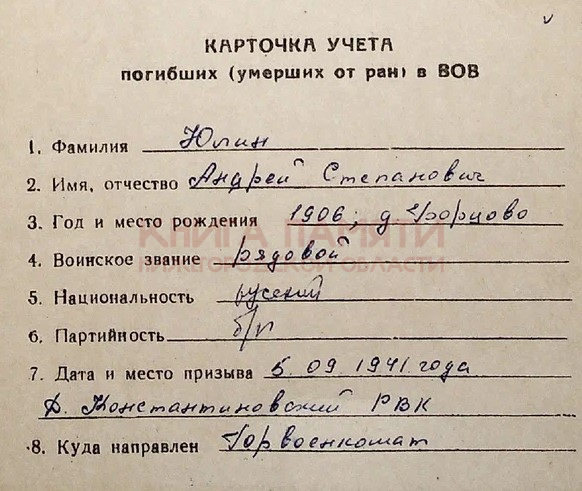 КАРТОЧКА УЧЕТА
погибших (умерших от ран) в ВОВ
1. Фамилия Юлин
2. Имя, отчество Андрей Степанович
3. Год и место рождения 1906; д.
КНИГА ПАМЯТИ
4. Воинское звание рядовой
НИЖЕГОРОДСКОЙ ОБЛАСТИ
5. Национальность русский
6. Партийность б/п
7. Дата и место призыва 5.09.1941 года
Д. Константиновский РВК
8. Куда направлен Горвоенкомат